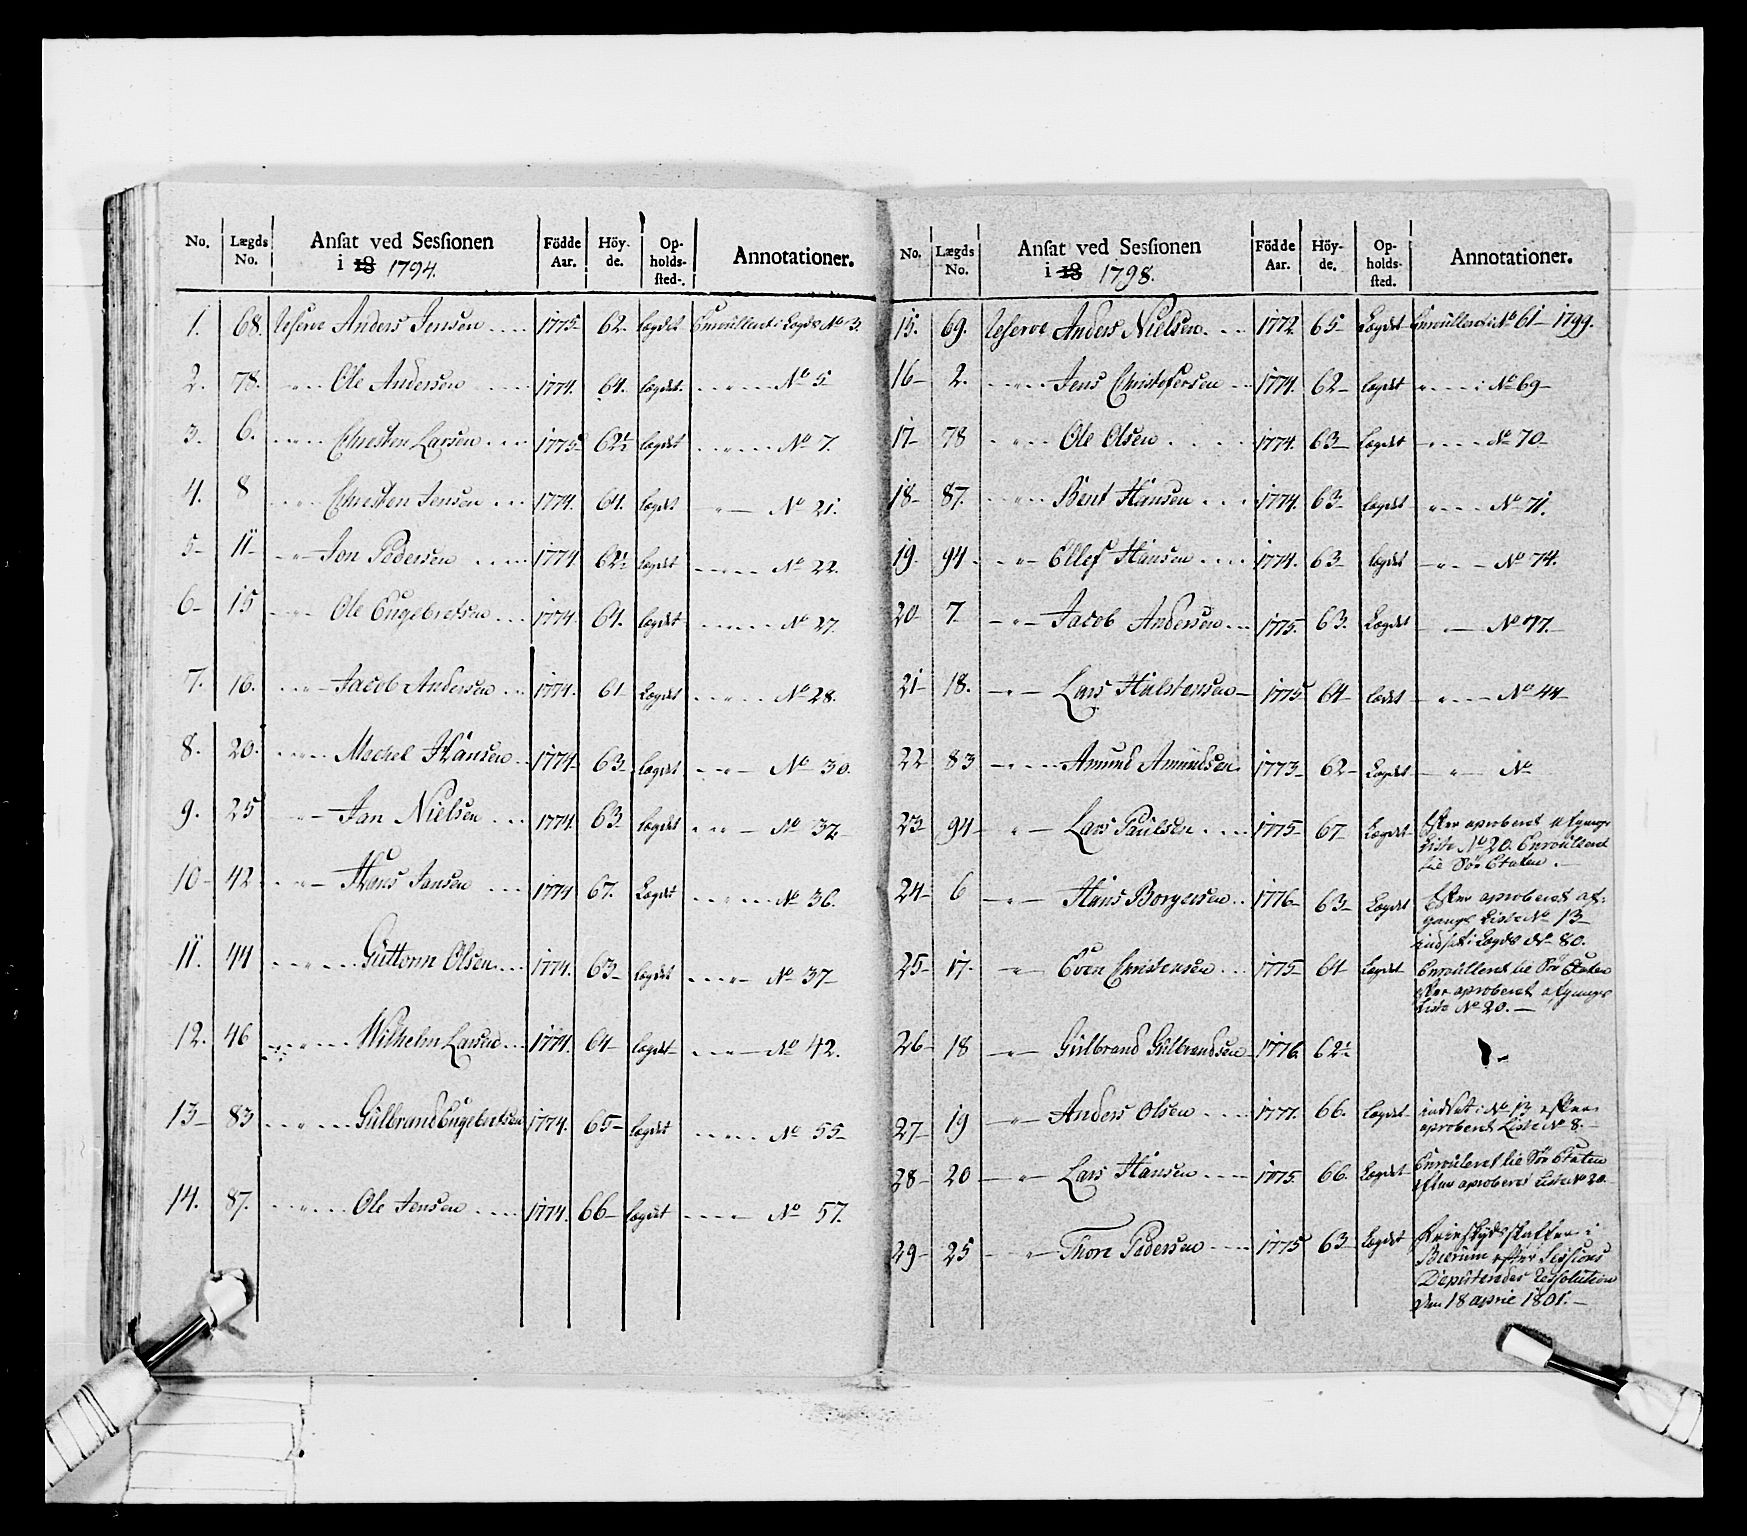 No. Lægds No. Ansat ved Sessionen i 18 1794. Födde Aar. Höyde. Opholdssted. Annotationer.
1. 68. Reserve Anders Jensen 1775 62 Lægdet Enroulleret i Lægds No 3.
2. 78. Ole Andersen 1774. 64. Lægdet No 5
3. 6. Christen Larsen 1775 62½ Lægdet No 7.
4. 8 Christen Jensen 1774. 64. Lægdet No 21.
5 11 Jon Pedersen 1774 62½ Lægdet No 22.
6 15 Ole Engebretsen 1774. 64. Lægdet No 27.
7. 16. Jacob Andersen 1774. 61 Lægdet No 28.
8. 20. Mechel Hansen 1774 63 Lægdet No 30.
9. 25 Jan Nielsen 1774. 63 Lægdet No 32
10 42 Hans Jansen 1774 67. Lægdet No 36.
11. 44 Guttorm Olsen 1774. 63 Lægdet No 37
12. 46 Wilhelm Larsen 1774. 64 Lægdet No 42.
13 83 Gulbrand Engebretsen 1774. 65 Lægdet No 55
14. 87. Ole Jensen 1774. 66 Lægdet No 57.
No. Lægds No. Ansat ved Sessionen i 18 1798. Födde Aar. Höyde. Opholdssted. Annotationer.
15. 69. Reserve Anders Nielsen 1772 65 Lægdet Enroulleret i No 61 1799.
16 2. Jens Christofersen 1774. 62 Lægdet i No 69
17 78 Ole Olsen 1774. 63 Lægdet No 70
18 87. Bent Hansen 1774. 63 Lægdet No 71.
19. 94 Ellef Hansen 1774. 63 Lægdet No 74.
20 7. Jacob Andersen 1775. 63. Lægdet No 77.
21 18. Lars Halstensen 1775 64 Lædet No 44
22 83 Amund Amundsen 1773 62 Lægdet No
23 94 Lars Paulsen 1775 67 Lægdet Efter aproberet afgangs
Liste No 20. Enroulleret
til Sør Etaten.
24 6 Hans Borgersen 1776 63 Lægdet Efter aproberet af-
gangs Liste No 13
indsat i Lægds No 80.
25 17. Even Christensen 1775 64 Lægdet Enroulleret til Sør Etaten
efter aproberet afgangs
Liste No 20.
26 18 Gulbrand Gulbrandsen 1776. 62½
27 19 Anders Olsen 1777. 66. Lægdet indsat i No 13 efter
aproberet Liste No 8.
28 20 Lars Hansen 1775. 66. Lægdet Enrouleret til Sør Etaten
efter aproberet Liste No 20
29 25 Thore Pedersen 1775 63 Lægdet i
Bærum efter Sessions
Deputeredes Ressolution
den 18 aprie 1801.